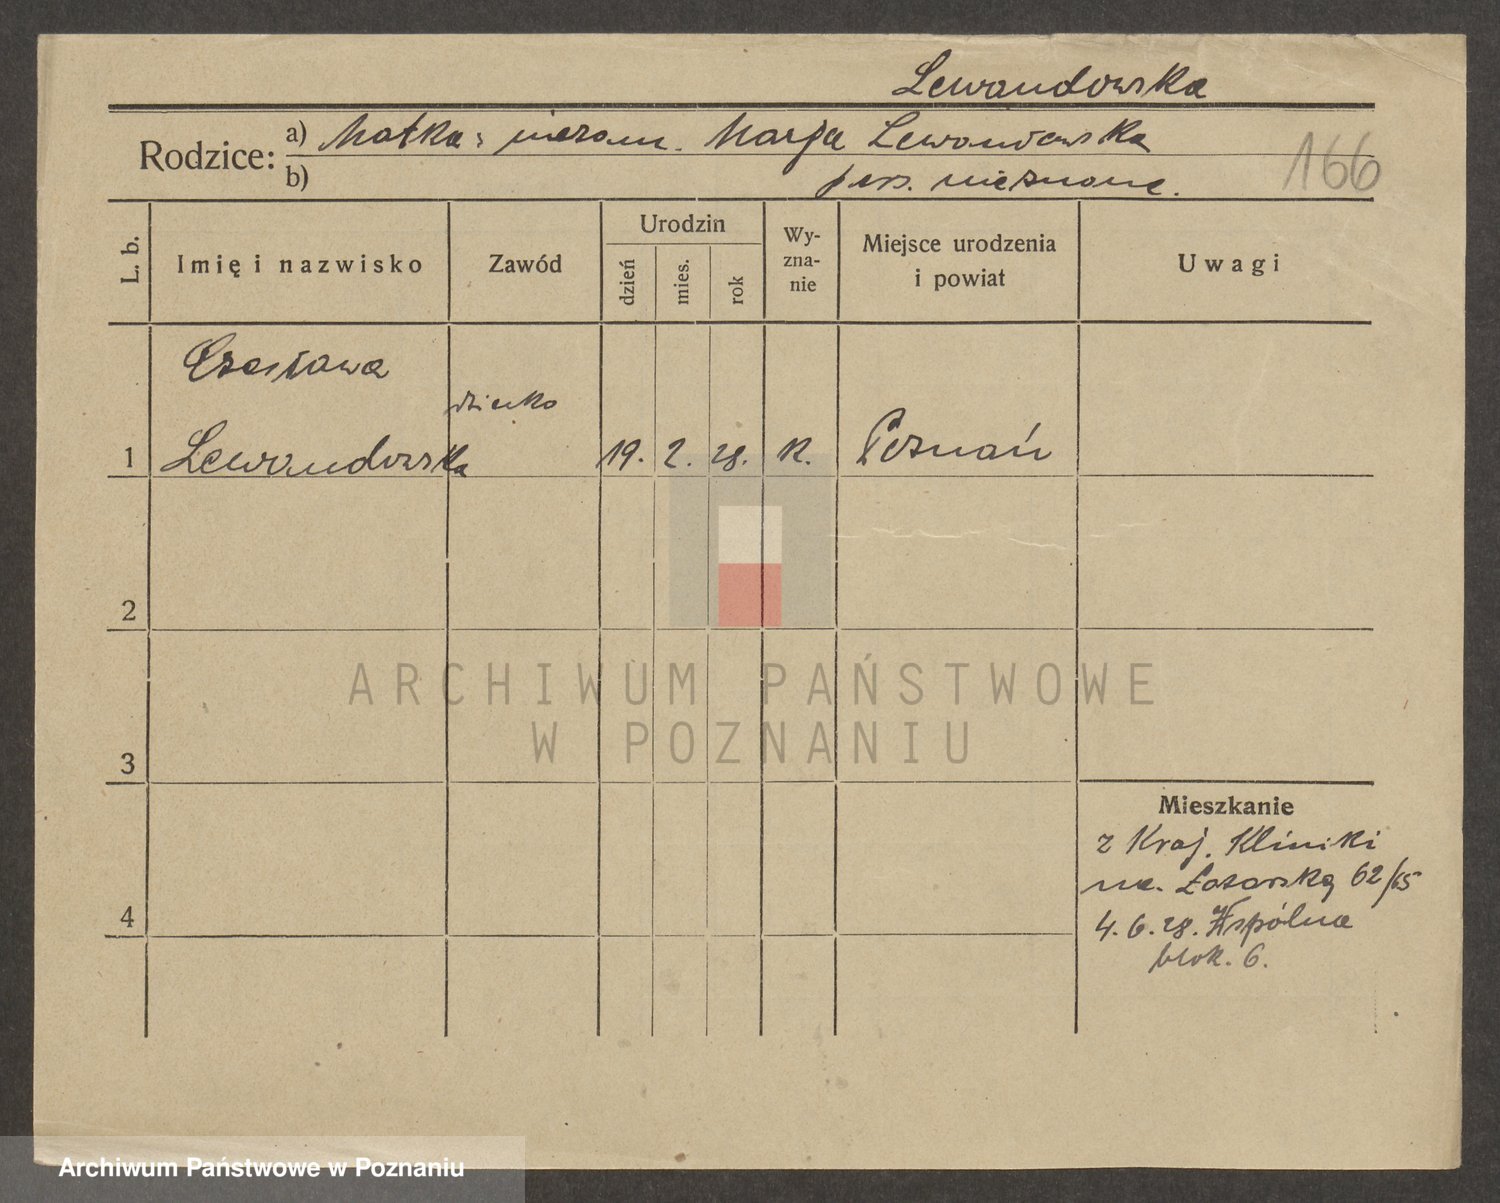 Lewandowska
Rodzice: a) Matka: niezam. Marja Lewandowska
b) pers. nieznane.
166
L. b.
Imię i nazwisko
Zawód
Urodzin
dzień
mies.
rok
Wy-
zna-
nie
Miejsce urodzenia
i powiat
Uwagi
Czesława
dziecko
1 Lewandowska 19. 2. 28. K. Poznań
2
ARCHIWUM PAŃSTWOWE
W POZNANIU
3
Mieszkanie
z Kraj. Kliniki
na Łazarską 62/65
4
4. 6. 28. Wspólna
blok. 6.
Archiwum Państwowe w Poznaniu